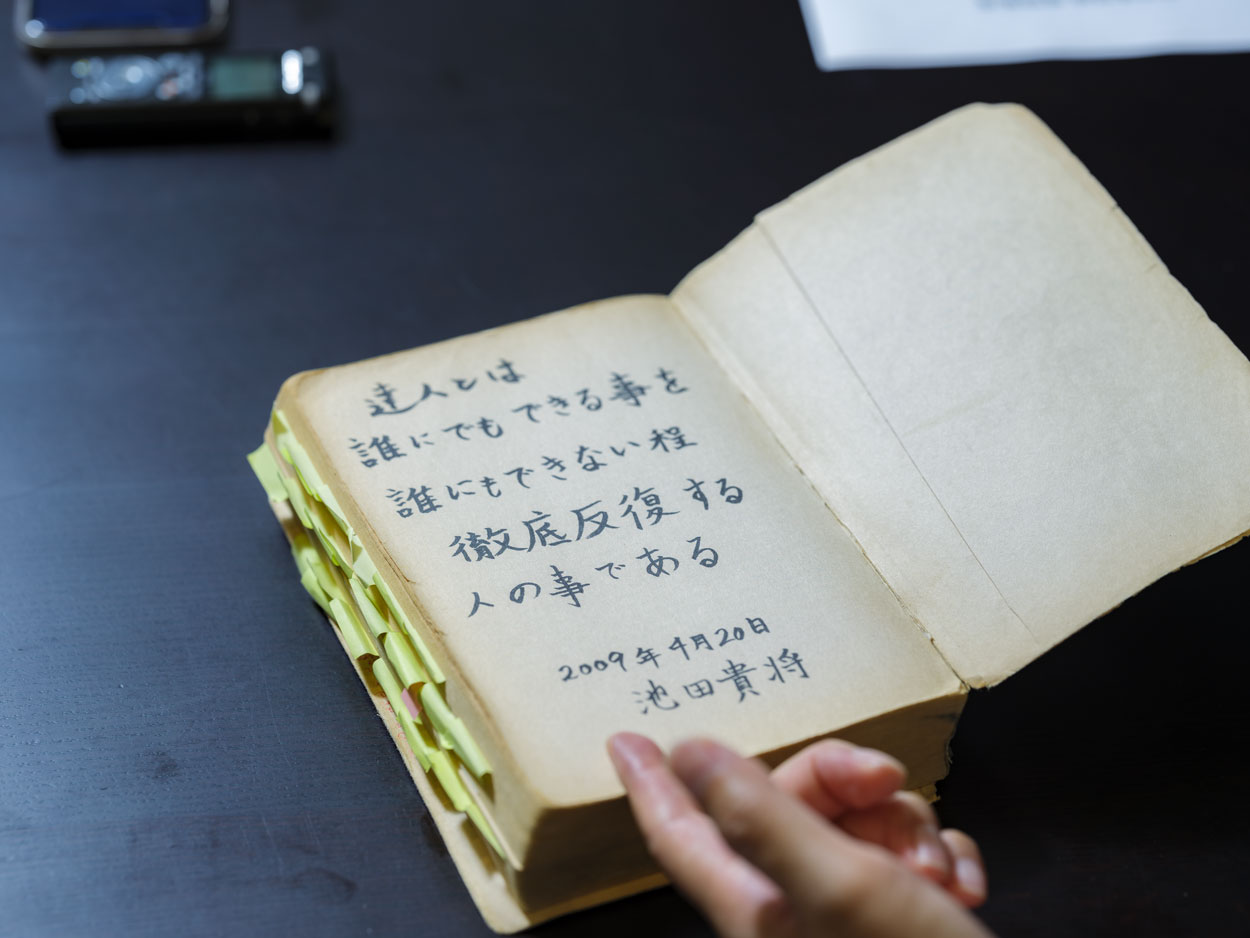 達人とは
誰にでもできる事を
誰にもできない程
徹底反復する
人の事である
2009年4月20日
池田貴将